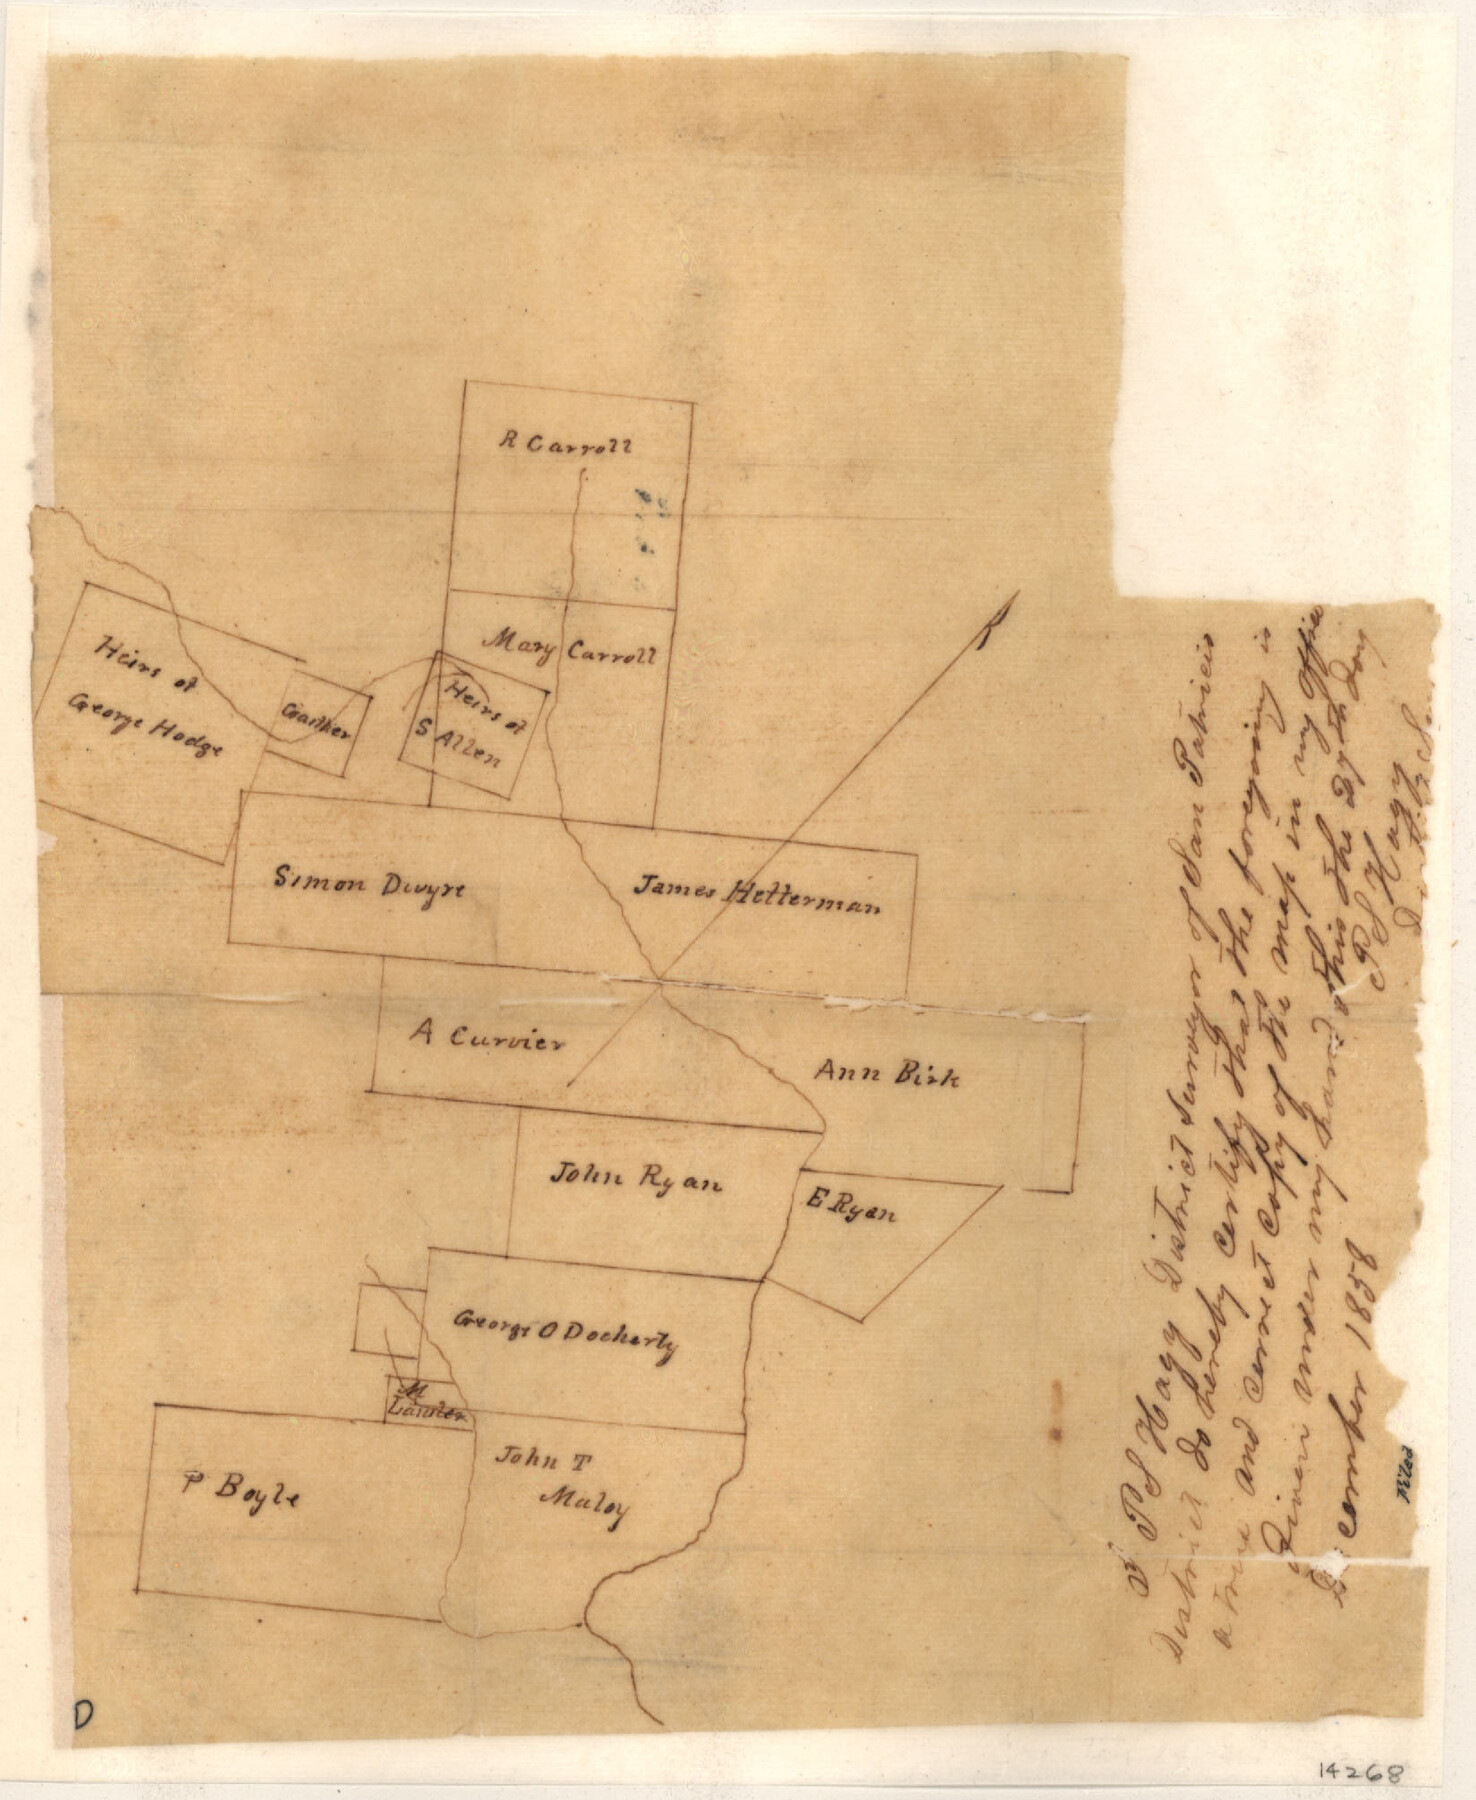 R Carroll
Mary Carroll
Heirs of
George Hodge
Gaither
Heirs of
S Allen
Simon Dwyre
James Hetterman
A Curvier
Ann Birk
John Ryan
E Ryan
George O Docherty
M
P Boyle
John T
Maloy
I P S Hagy District Surveyor of San Patricio
District do hereby certify that the foregoing is
a true and correct copy of the map in my office
Given under my hand this the 29th day
December 1858
P S Hagy
Filed
D
14268